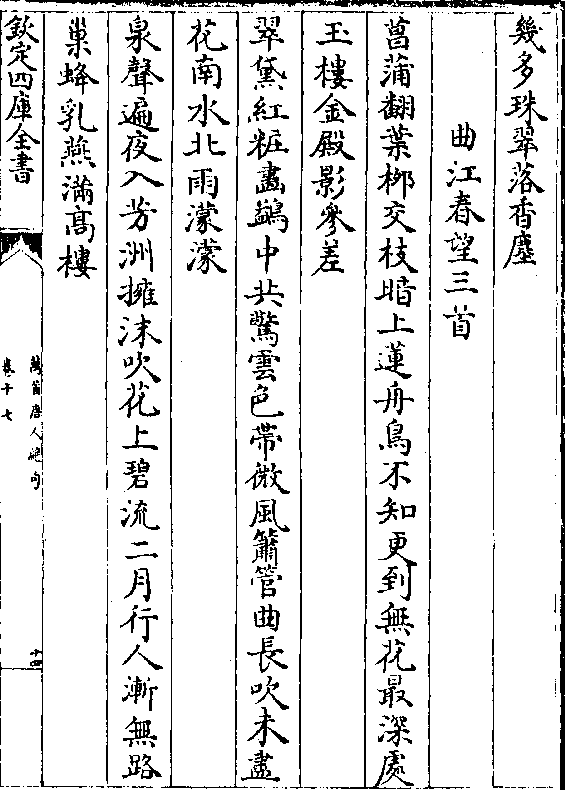 幾多珠翠落香塵
曲江春望三首
菖蒲翻葉栁交枝暗上蓮舟鳥不知更到無花最深處
玉樓金殿影參差
翠黛紅粧畫鷁中共驚雲色帶微風簫管曲長吹未盡
花南水北雨濛濛
泉聲遍夜入芳洲擁沫吹花上碧流二月行人漸無路
巢蜂乳燕滿髙樓
欽定四庫全書
萬首唐人絶句
卷十七
十四